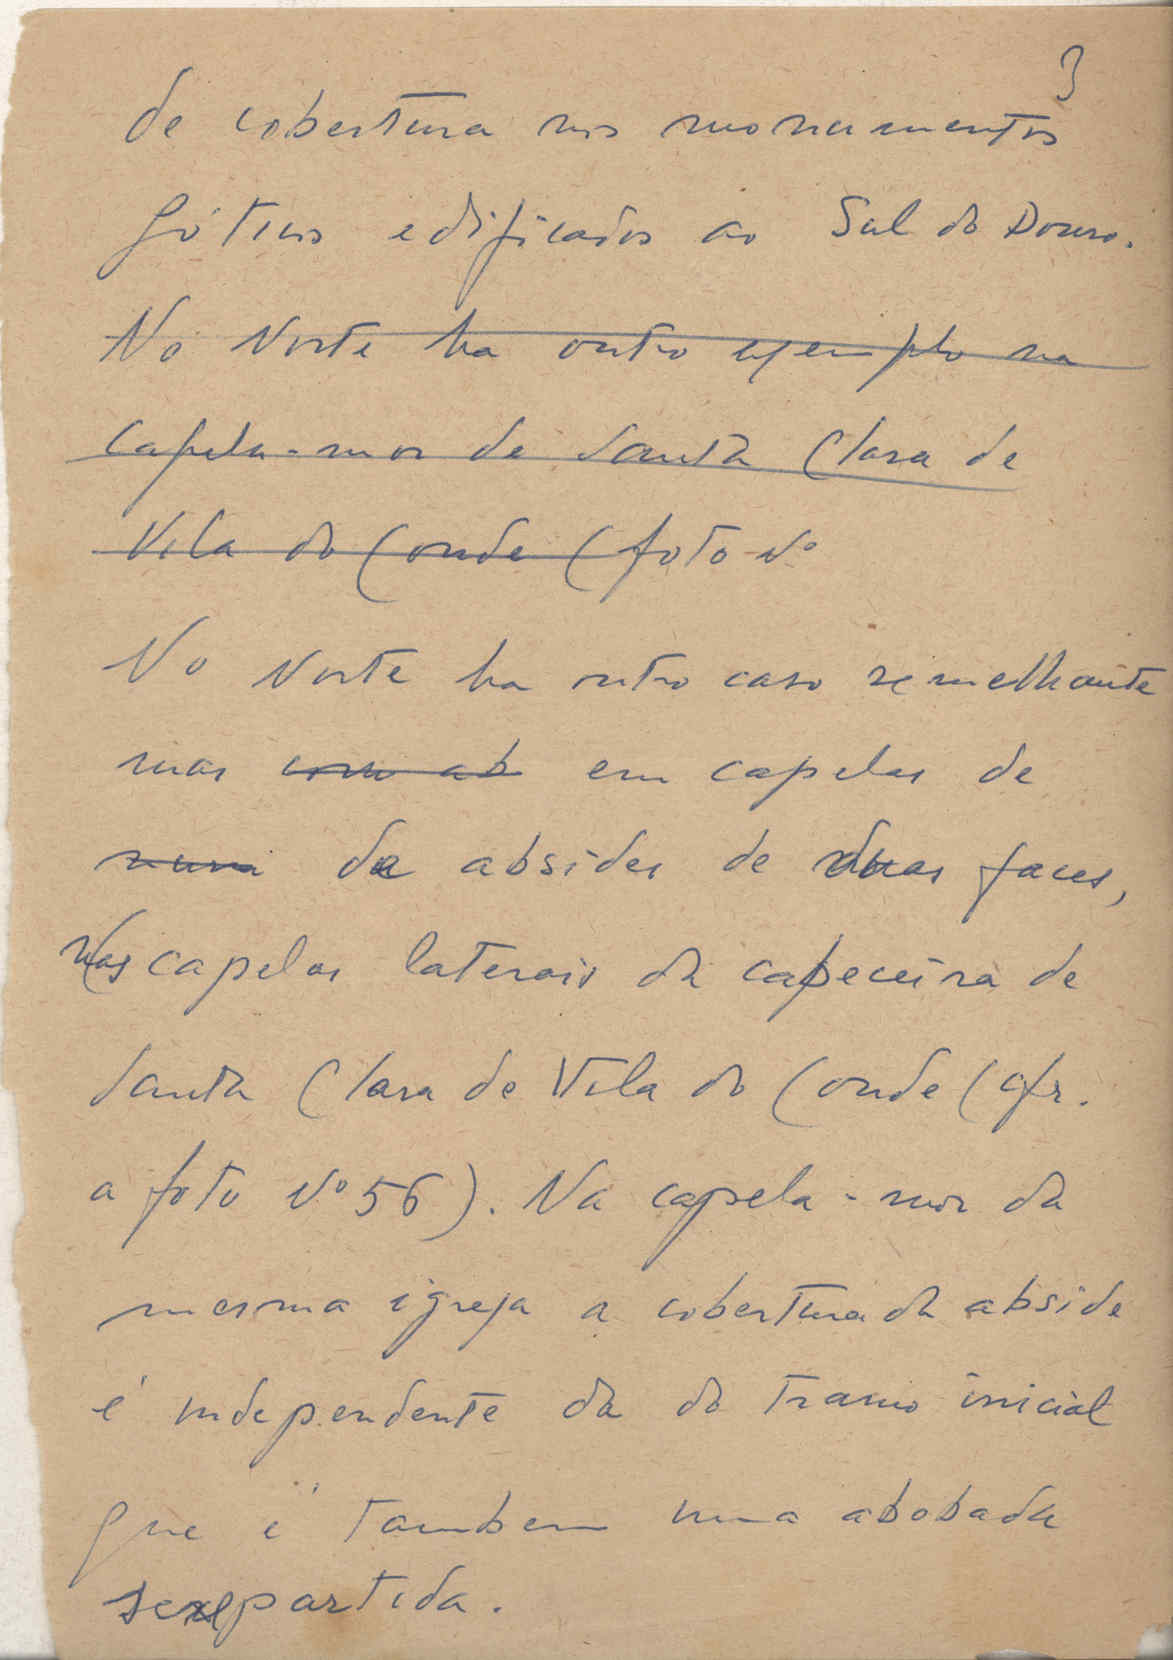 3
de cobertura nos monumentos
góticos edificados ao Sul do Douro.
No Norte ha outro exemplo na
capela-mor de Santa Clara de
Vila do Conde (foto nº
No Norte ha outro caso semelhante
mas como ab em capelas de
numa da absides de duas faces,
Nas capelas laterais da cabeceira de
Santa Clara de Vila do Conde (cfr.
a foto nº 56). Na capela-mor da
mesma igreja a cobertura da abside
é independente da do tramo inicial
que é tambem uma abobada
sexpartida.